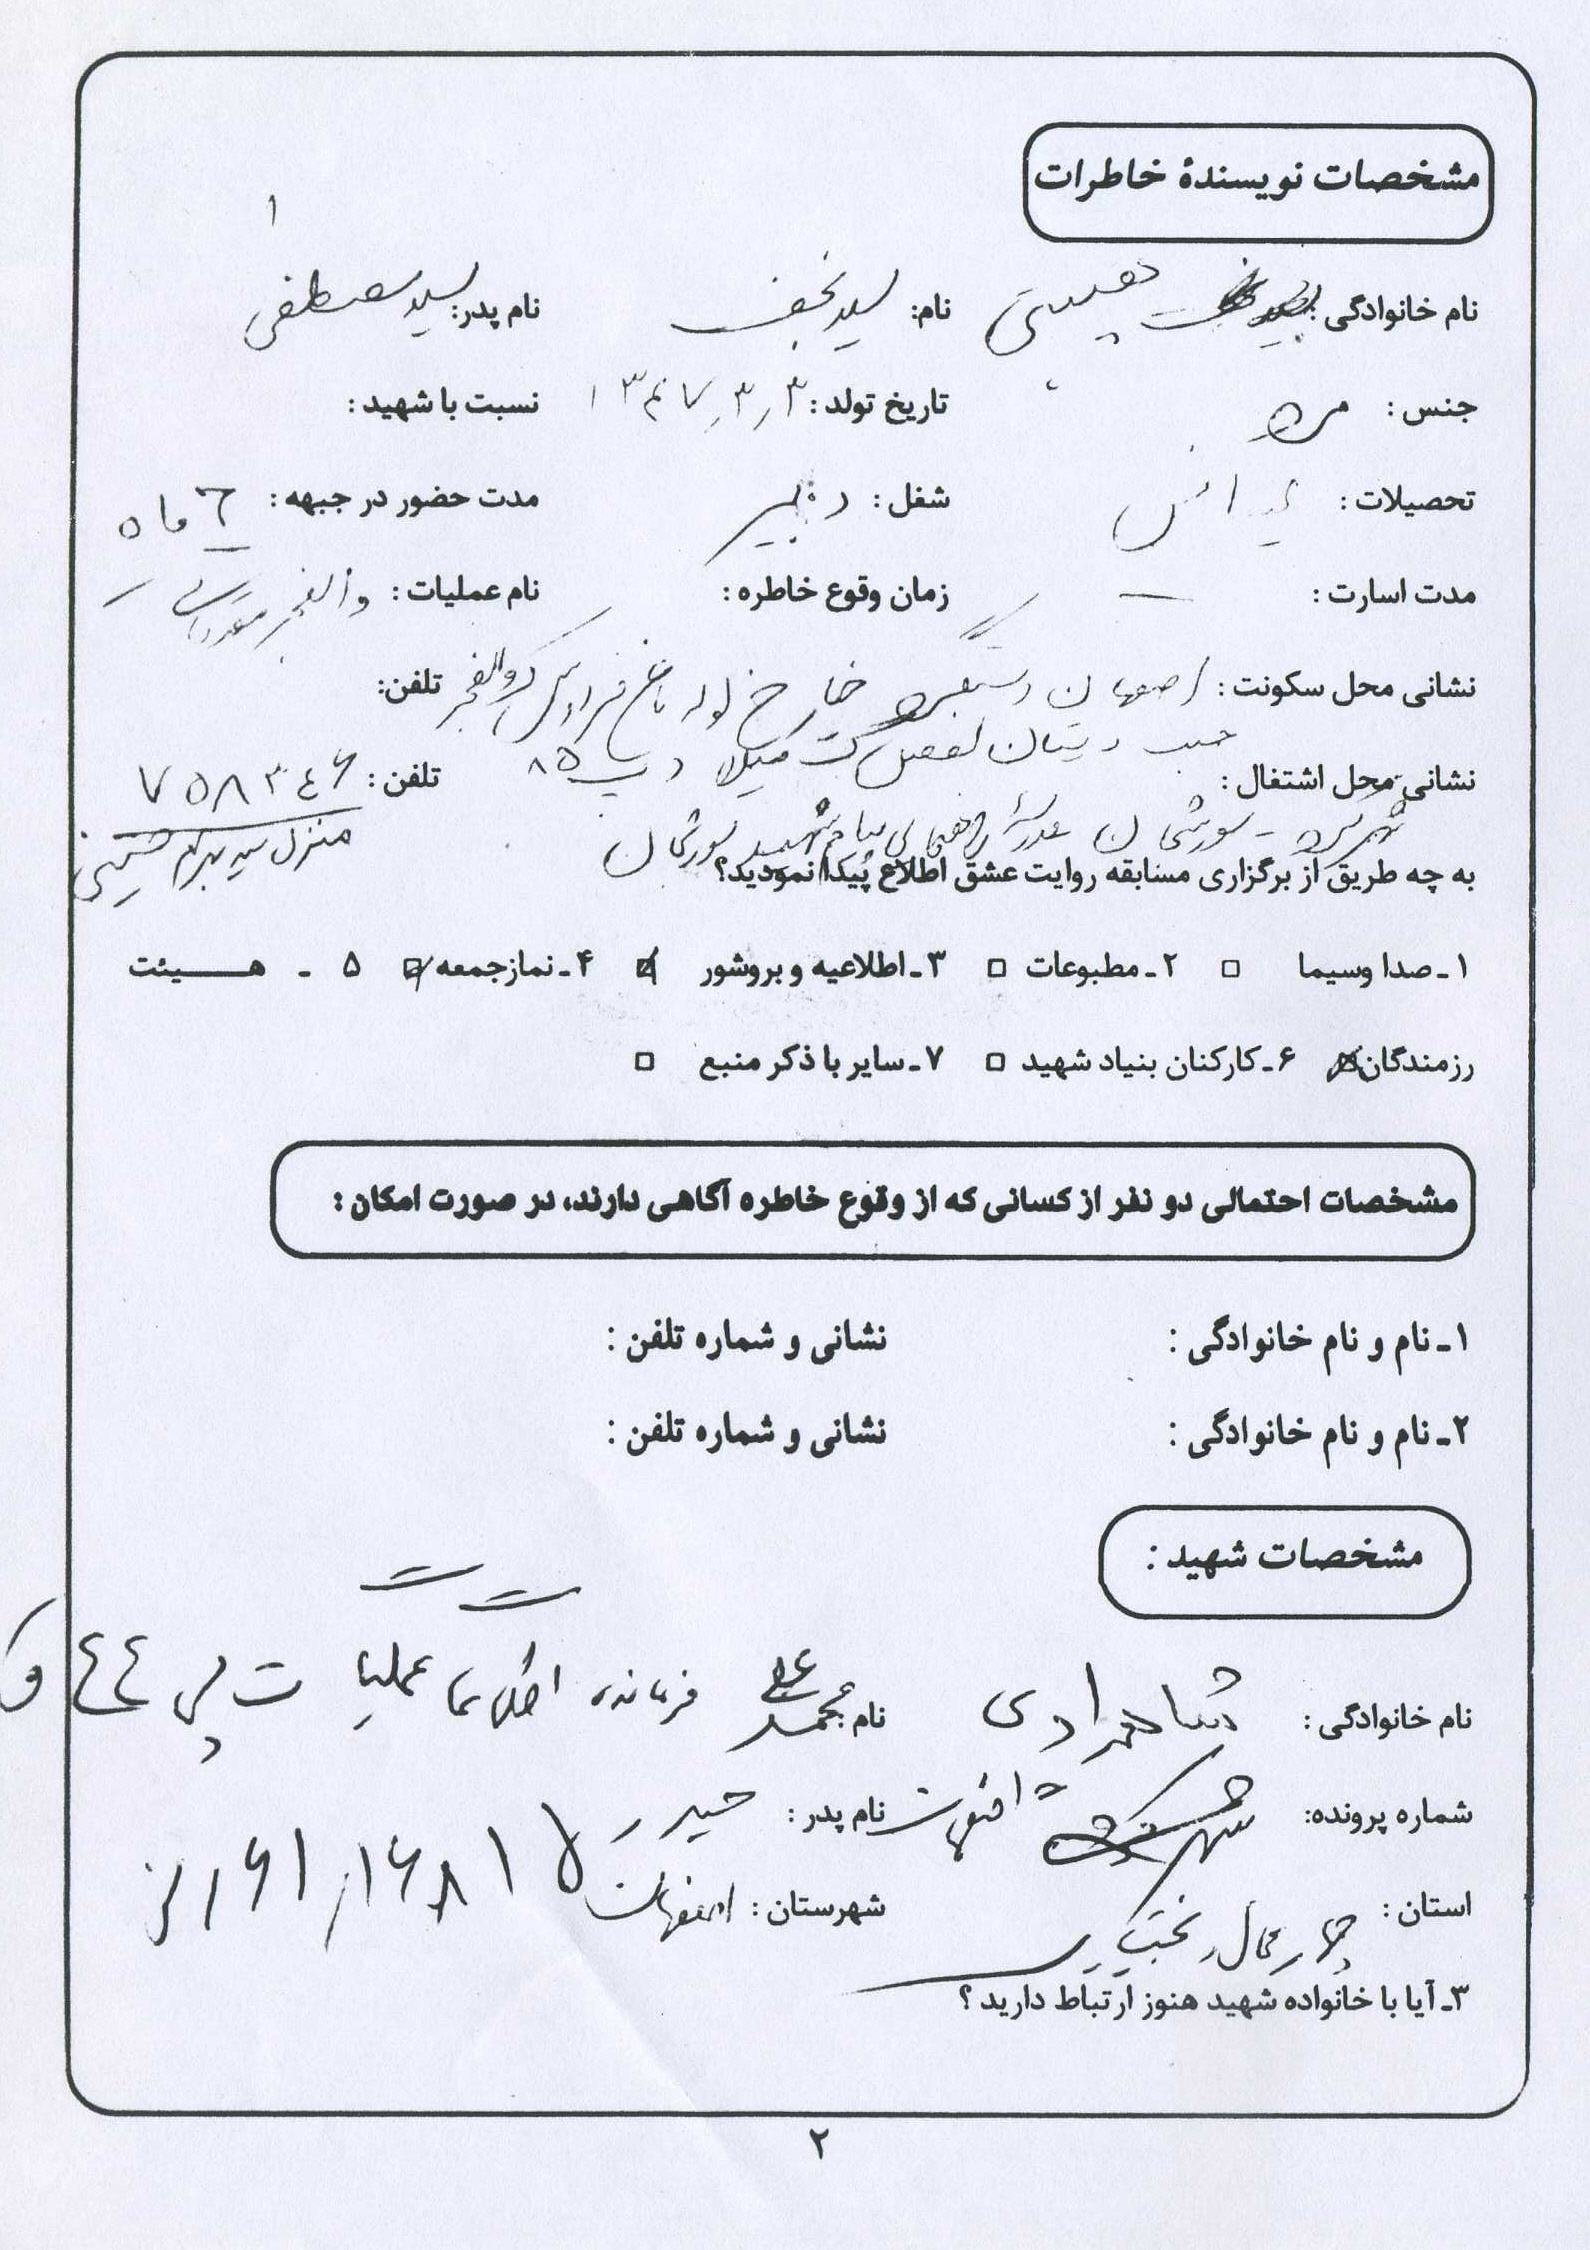 مشخصات نویسندهٔ خاطرات
نام خانوادگی: نام: سید نجف نام پدر: سید مصطفی
جنس: مرد تاریخ تولد: ۱۳۴۷٫۳٫۳ نسبت با شهید:
تحصیلات: لیسانس شغل: دبیر مدت حضور در جبهه: ۶ ماه
مدت اسارت: — زمان وقوع خاطره: نام عملیات: والفجر مقدماتی
نشانی محل سکونت: اصفهان خ لاله تلفن:
جنب دبستان پ ۸۵
نشانی محل اشتغال: تلفن: ۷۵۸۳۴۶
شهرکرد - سورشجان مدرسه راهنمایی پیام شهید سورشجان منزل سید حسینی
به چه طریق از برگزاری مسابقه روایت عشق اطلاع پیدا نمودید؟
۱ـ صدا وسیما □ ۲ـ مطبوعات □ ۳ـ اطلاعیه و بروشور ☑ ۴ـ نمازجمعه ☑ ۵ ـ هـــیئت
رزمندگان ☑ ۶ـ کارکنان بنیاد شهید □ ۷ـ سایر با ذکر منبع □
مشخصات احتمالی دو نفر از کسانی که از وقوع خاطره آگاهی دارند، در صورت امکان:
۱ـ نام و نام خانوادگی: نشانی و شماره تلفن:
۲ـ نام و نام خانوادگی: نشانی و شماره تلفن:
مشخصات شهید:
نام خانوادگی: شاهمرادی نام: محمد علی فرمانده اطلاعات عملیات ل ۴۴
شماره پرونده: نام پدر: حیدر
استان: چهارمحال بختیاری شهرستان: اصفهان
۳ـ آیا با خانواده شهید هنوز ارتباط دارید؟
۲